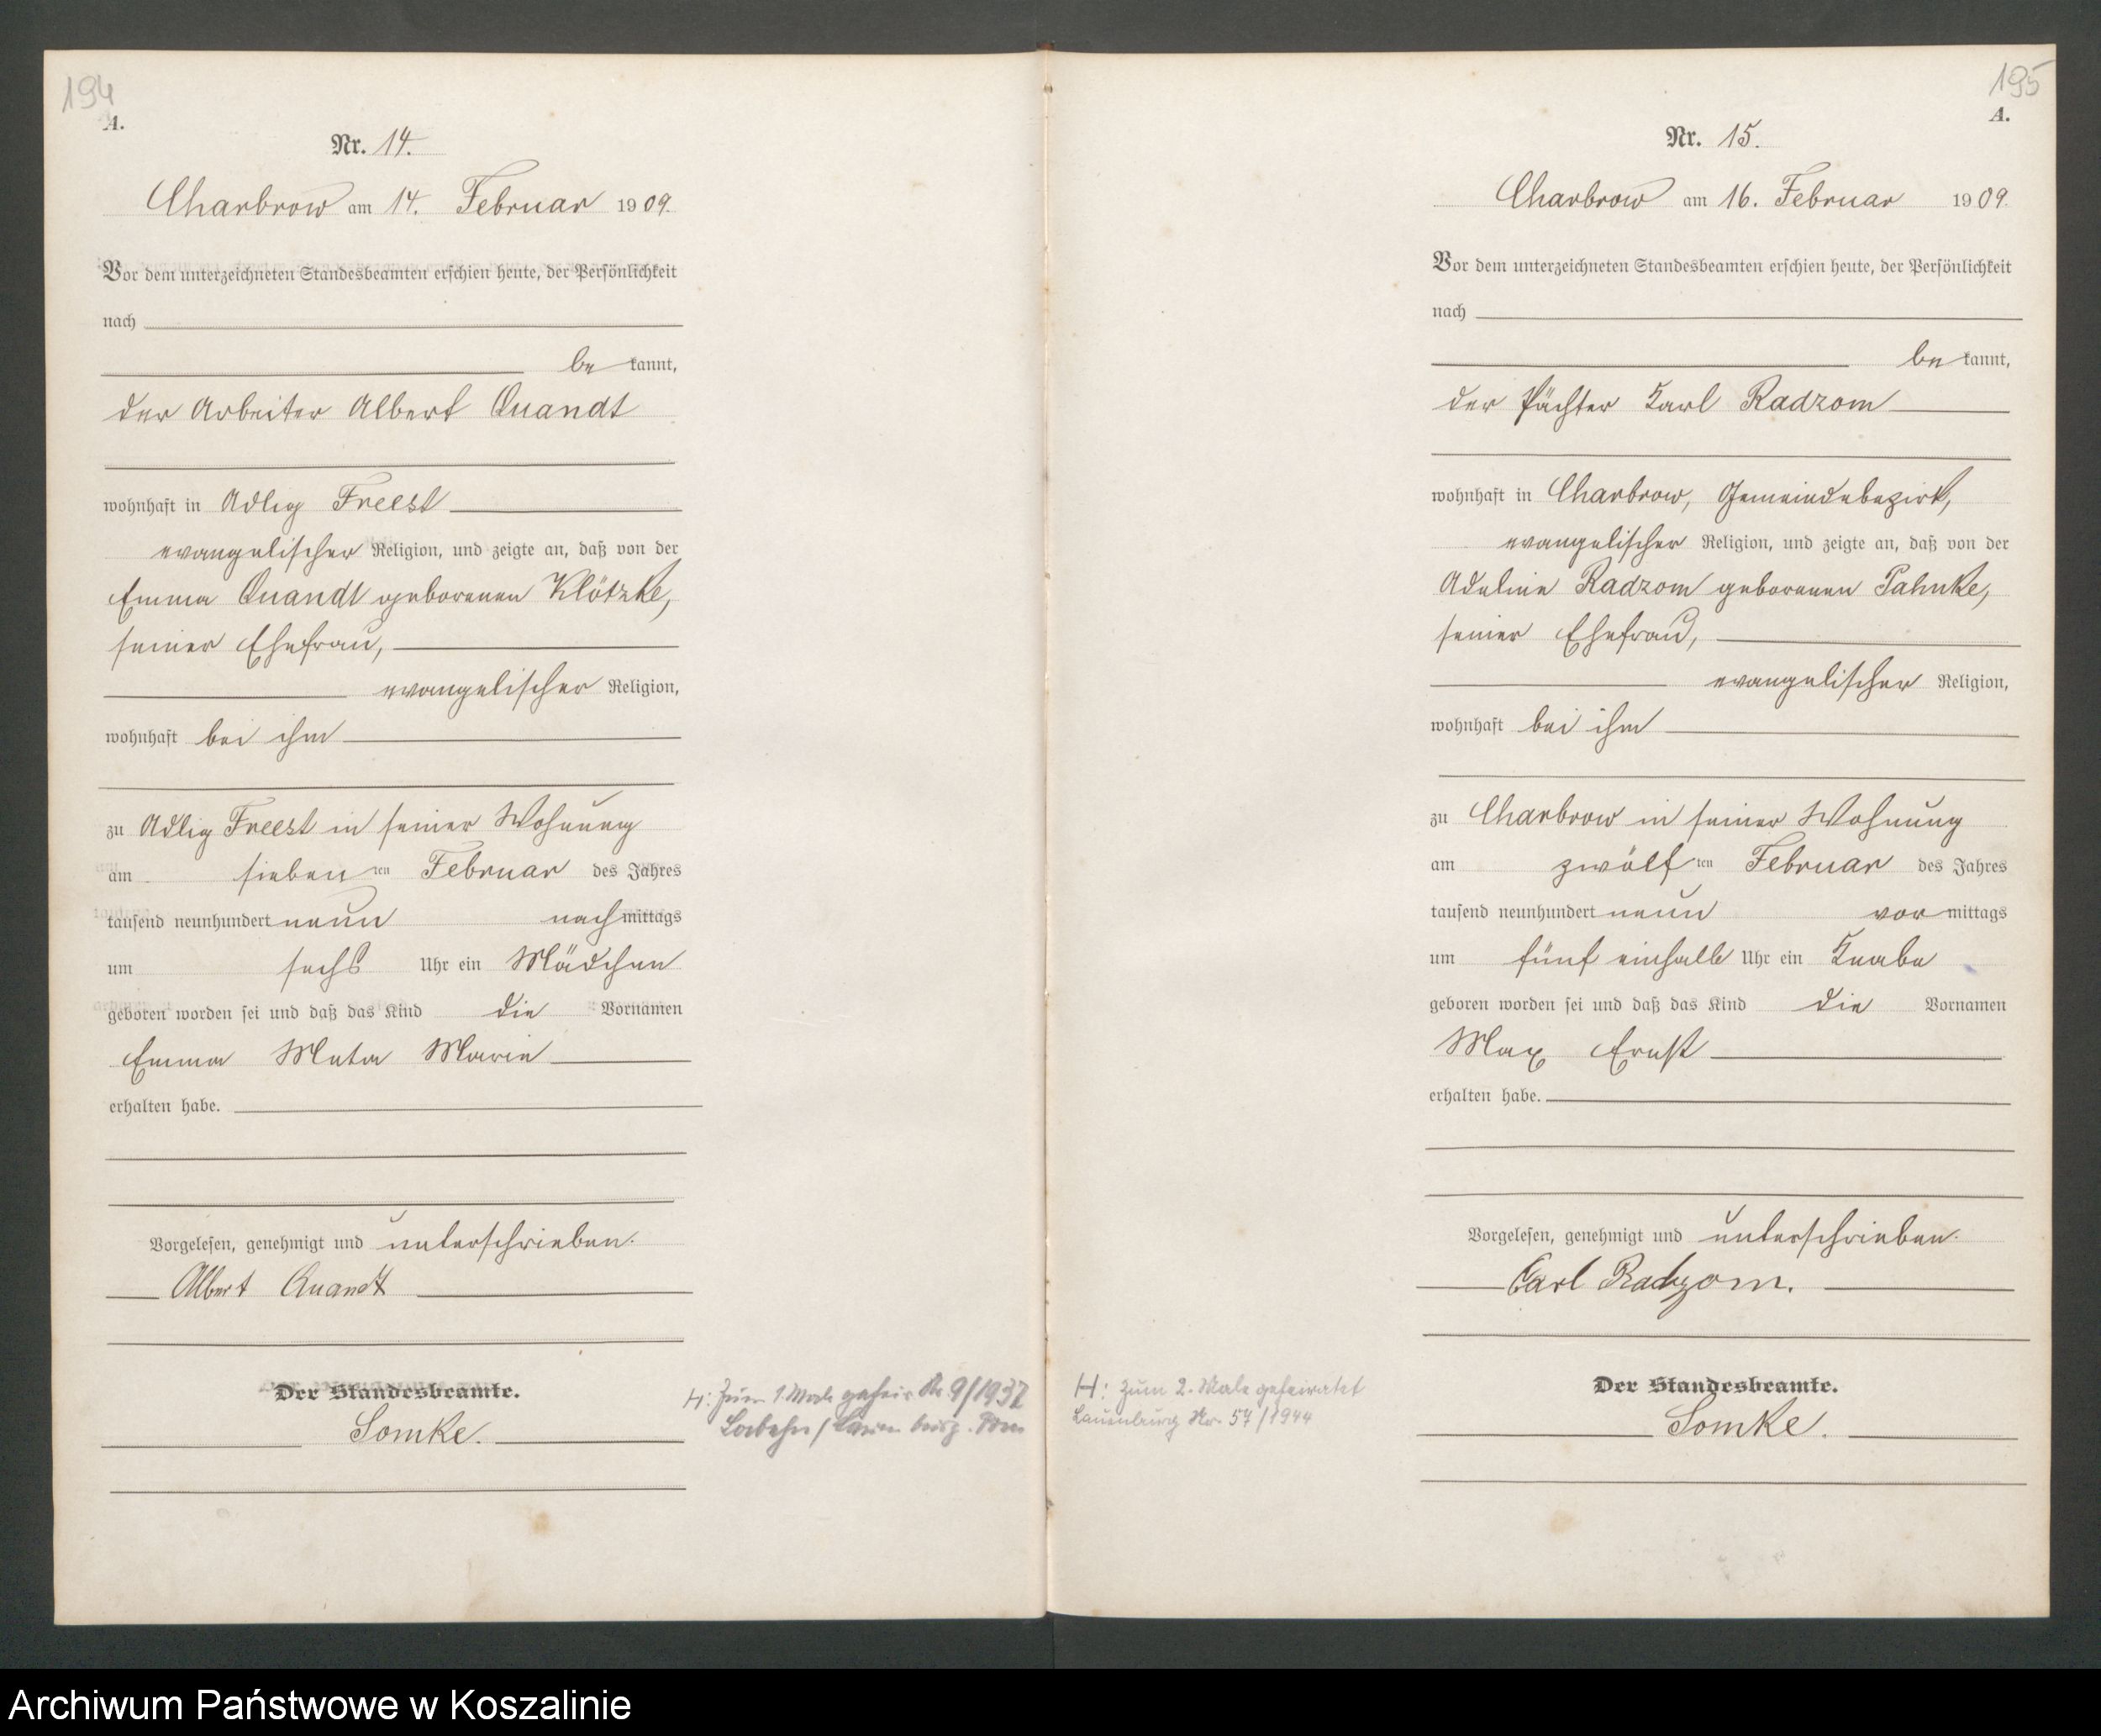 194
A.
Nr. 14.
Charbrow am 14. Februar 1909.
Vor dem unterzeichneten Standesbeamten erschien heute, der Persönlichkeit
nach
be kannt,
der Arbeiter Albert Quandt
wohnhaft in Adlig Freest
evangelischer Religion, und zeigte an, daß von der
Emma Quandt geborenen Klötzke,
seiner Ehefrau,
evangelischer Religion,
wohnhaft bei ihm
zu Adlig Freest in seiner Wohnung
am sieben ten Februar des Jahres
tausend neunhundert neun nach mittags
um sechs Uhr ein Mädchen
geboren worden sei und daß das Kind die Vornamen
Emma Meta Marie
erhalten habe.
Vorgelesen, genehmigt und unterschrieben.
Albert Quandt
Der Standesbeamte.
Somke.
H: Zum 1. Male geheir. Nr. 9/1937
Labehn/
195
A.
Nr. 15.
Charbrow am 16. Februar 1909.
Vor dem unterzeichneten Standesbeamten erschien heute, der Persönlichkeit
nach
be kannt,
der Pächter Karl Radzom
wohnhaft in Charbrow, Gemeindebezirk,
evangelischer Religion, und zeigte an, daß von der
Adeline Radzom geborenen Pahnke,
seiner Ehefrau,
evangelischer Religion,
wohnhaft bei ihm
zu Charbrow in seiner Wohnung
am zwölf ten Februar des Jahres
tausend neunhundert neun vor mittags
um fünf einhalb Uhr ein Knabe
geboren worden sei und daß das Kind die Vornamen
Max Ernst
erhalten habe.
Vorgelesen, genehmigt und unterschrieben.
Carl Radzom.
Der Standesbeamte.
Somke.
H: Zum 2. Male geheiratet
Lauenburg Nr. 54/1944
Archiwum Państwowe w Koszalinie